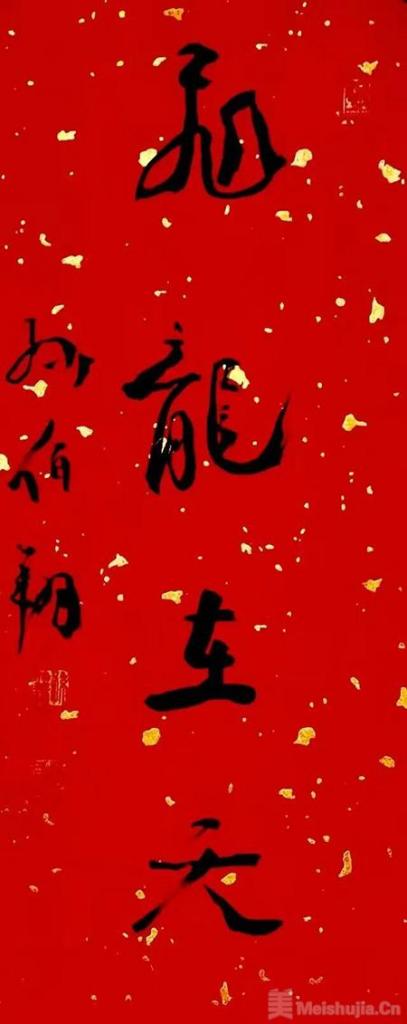 飛龍在天
孙伯翔
美 Meishujia.Cn